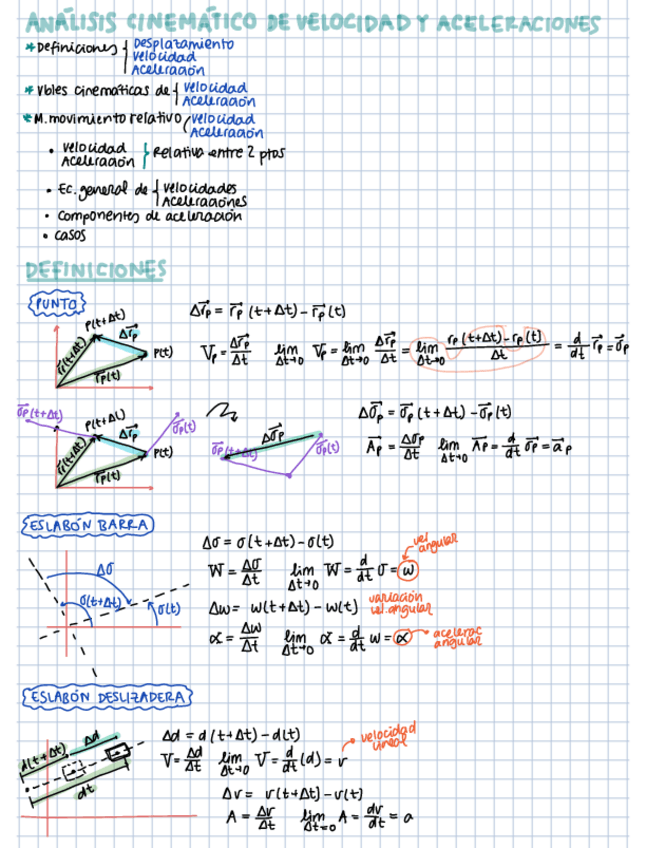 ANÁLISIS CINEMÁTICO DE VELOCIDAD Y ACELERACIONES
* Definiciones { Desplazamiento
Velocidad
Aceleración
* Vbles cinemáticas de { Velocidad
Aceleración
* M. movimiento relativo ( Velocidad
Aceleración
• Velocidad
Aceleración } Relativa entre 2 ptos
• Ec. general de { velocidades
Aceleraciones
• Componentes de aceleración
• Casos
DEFINICIONES
PUNTO
P(t+Δt)
Δr⃗p
P(t)
r⃗(t+Δt)
r⃗p(t)
Δr⃗p = r⃗p (t+Δt) - r⃗p (t)
Vp = Δr⃗p/Δt lim Δt→0 Vp = lim Δt→0 Δr⃗p/Δt = lim Δt→0 rp(t+Δt)-rp(t)/Δt = d/dt r⃗p = σ⃗p
σ⃗p(t+Δt)
P(t+Δt)
Δr⃗p
σ⃗p(t)
P(t)
r⃗(t+Δt)
r⃗p(t)
Δσ⃗p
σ⃗p(t+Δt)
σ⃗p(t)
Δσ⃗p = σ⃗p (t+Δt) - σ⃗p (t)
A⃗p = Δσp/Δt lim Δt→0 A⃗p = d/dt σ⃗p = a⃗p
ESLABÓN BARRA
Δσ
σ(t+Δt)
σ(t)
Δσ = σ(t+Δt) - σ(t)
W = Δσ/Δt lim Δt→0 W = d/dt σ = w
vel angular
Δw = w(t+Δt) - w(t)
variación vel. angular
α = Δw/Δt lim Δt→0 α = d/dt w = α
acelerac angular
ESLABÓN DESLIZADERA
d(t+Δt)
Δd
dt
Δd = d(t+Δt) - d(t)
V = Δd/Δt lim Δt→0 V = d/dt (d) = v
velocidad lineal
Δv = v(t+Δt) - v(t)
A = Δv/Δt lim Δt=0 A = dv/dt = a